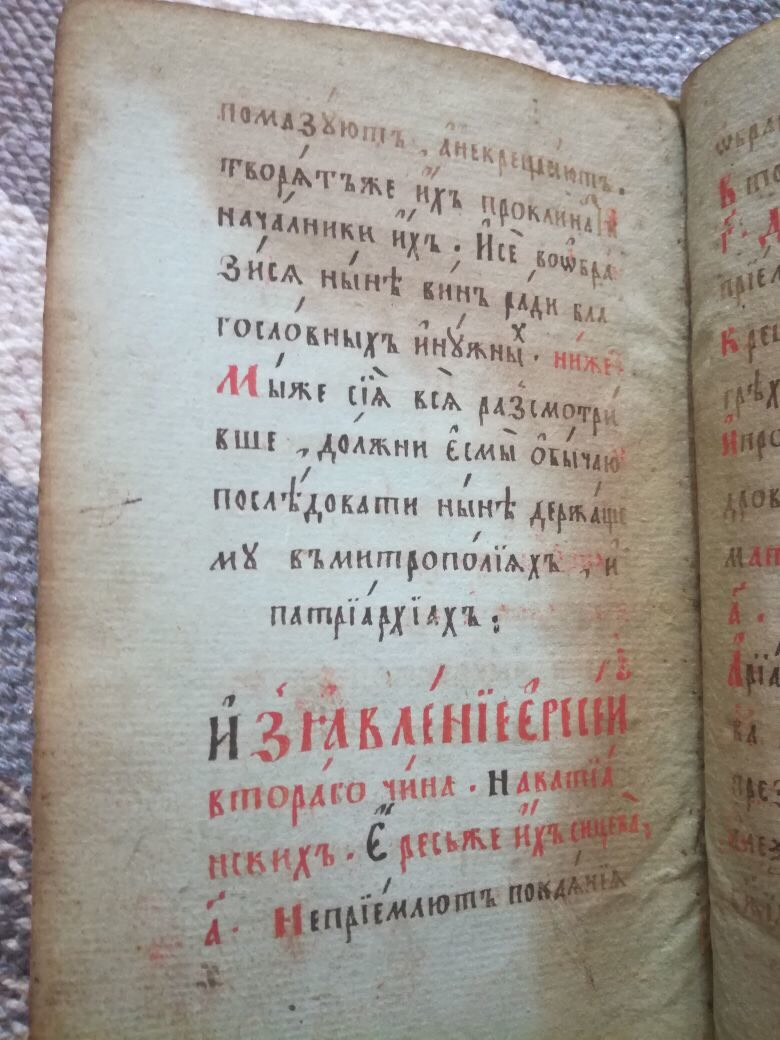 помазꙋютъ, а҆некрещаютъ.
творѧ́тъже и҆́хъ проклина́ти
нача́лники и҆́хъ. И҆се̑ воѡбра
зи́сѧ ны́нѣ ви́нъ ра́ди бла
госло́вныхъ и҆нꙋ́жныⷯ. ни́же
Мы́же сїѧ̑ всѧ̑ разсмотри́
вше, до́лжни є҆смы̀ ѻ҆бы́чаю
послѣ́довати ны́нѣ держа́ще
мꙋ въмитропо́лїѧхъ, и҆
патрїа́рхїахъ:
И҆З̾ІАВЛЕ́НЇЕЕ҆РЕСЕ́Й
втора́го чи́на. Наватїа́
нскихъ. Е҆́ресьже и҆́хъ сицева̀;
а҃. Непрїе́млютъ покаѧ́нїѧ